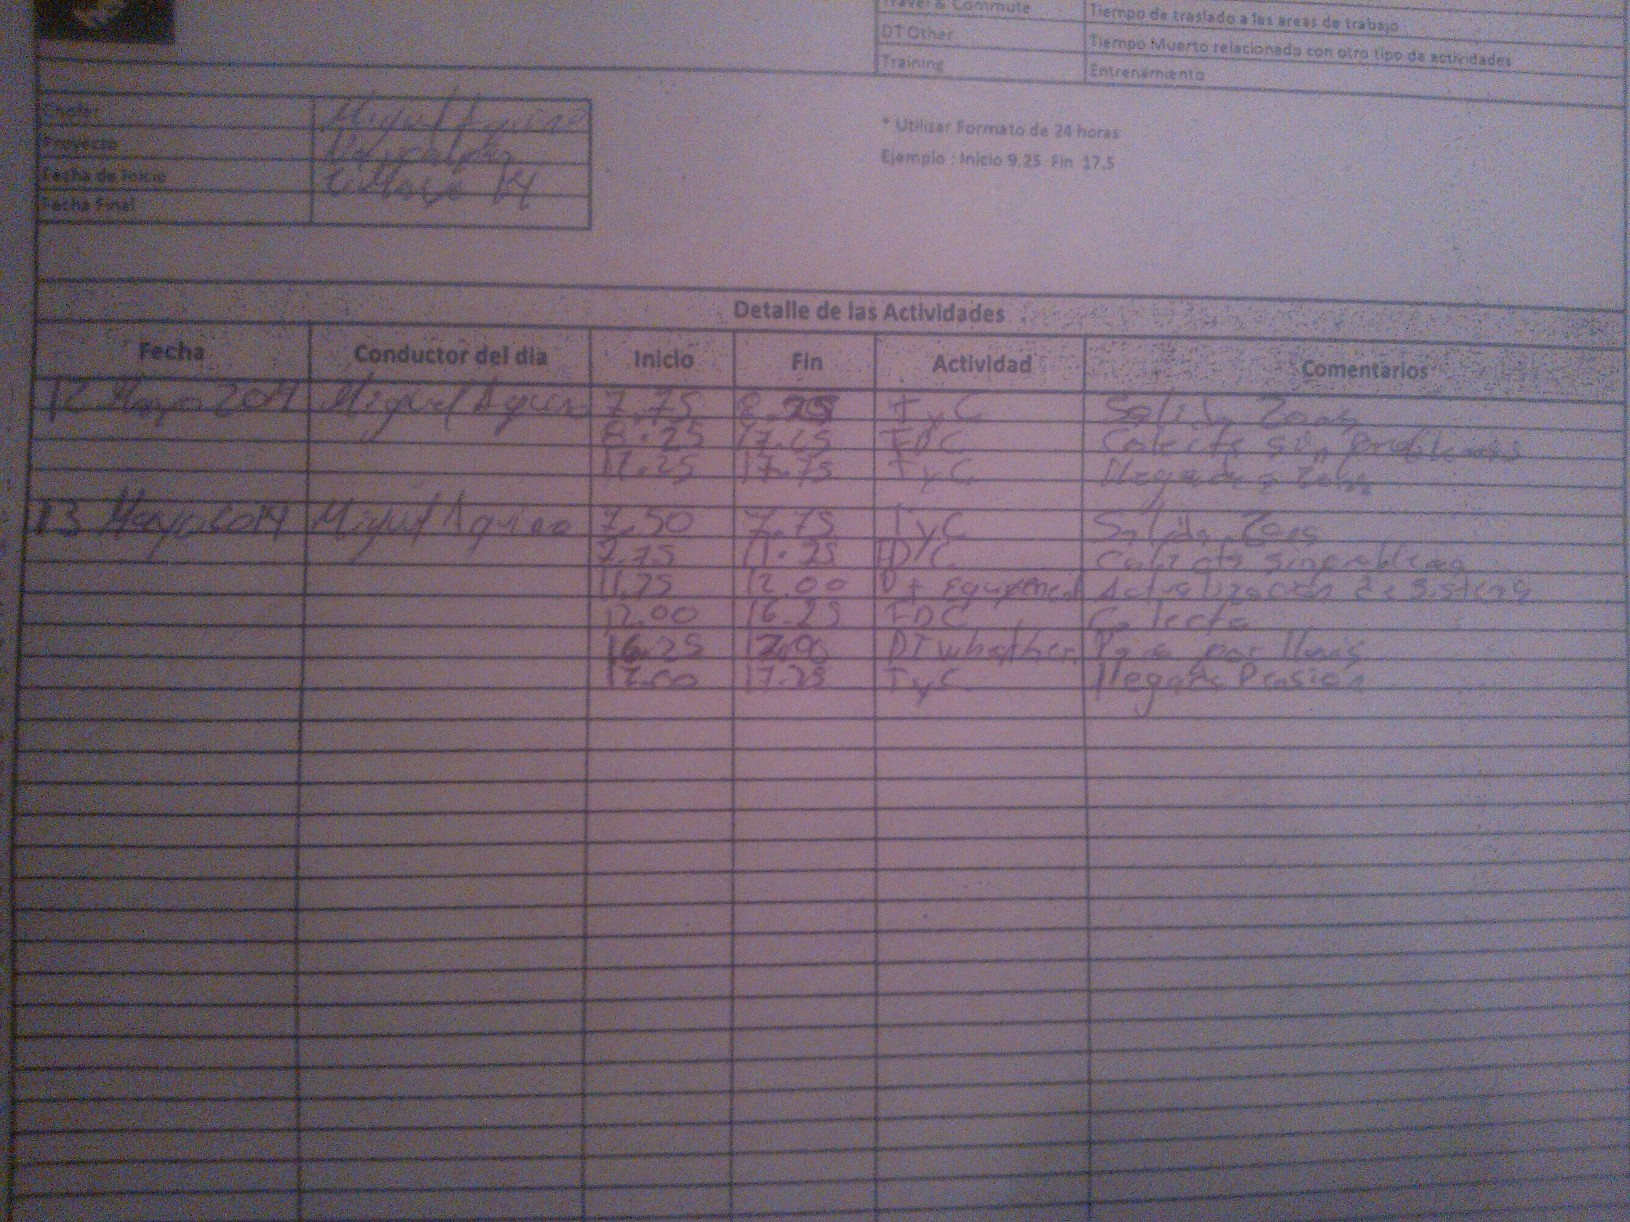 Travel & Commute Tiempo de traslado a las areas de trabajo
DT Other Tiempo Muerto relacionado con otro tipo de actividades
Training Entrenamiento
Chofer Miguel Aquino
Proyecto
Fecha de Inicio 12 Mayo 14
Fecha Final
* Utilizar Formato de 24 horas
Ejemplo : Inicio 9.25 Fin 17.5
Detalle de las Actividades
Fecha Conductor del dia Inicio Fin Actividad Comentarios
12 Mayo 2014 Miguel Aquino 7.75 8.25 T y C Salida Zona
8.25 17.25 FDC Colecta sin problemas
17.25 17.75 T y C llegada a Zona
13 Mayo 2014 Miguel Aquino 7.50 7.75 T y C Salida Zona
7.75 11.75 FDC Colecta sin problema
11.75 12.00 Dt equipment Actualización de sistema
12.00 16.25 FDC Colecta
16.25 17.00 DT whather. Paro por lluvias
17.00 17.25 T y C llegada